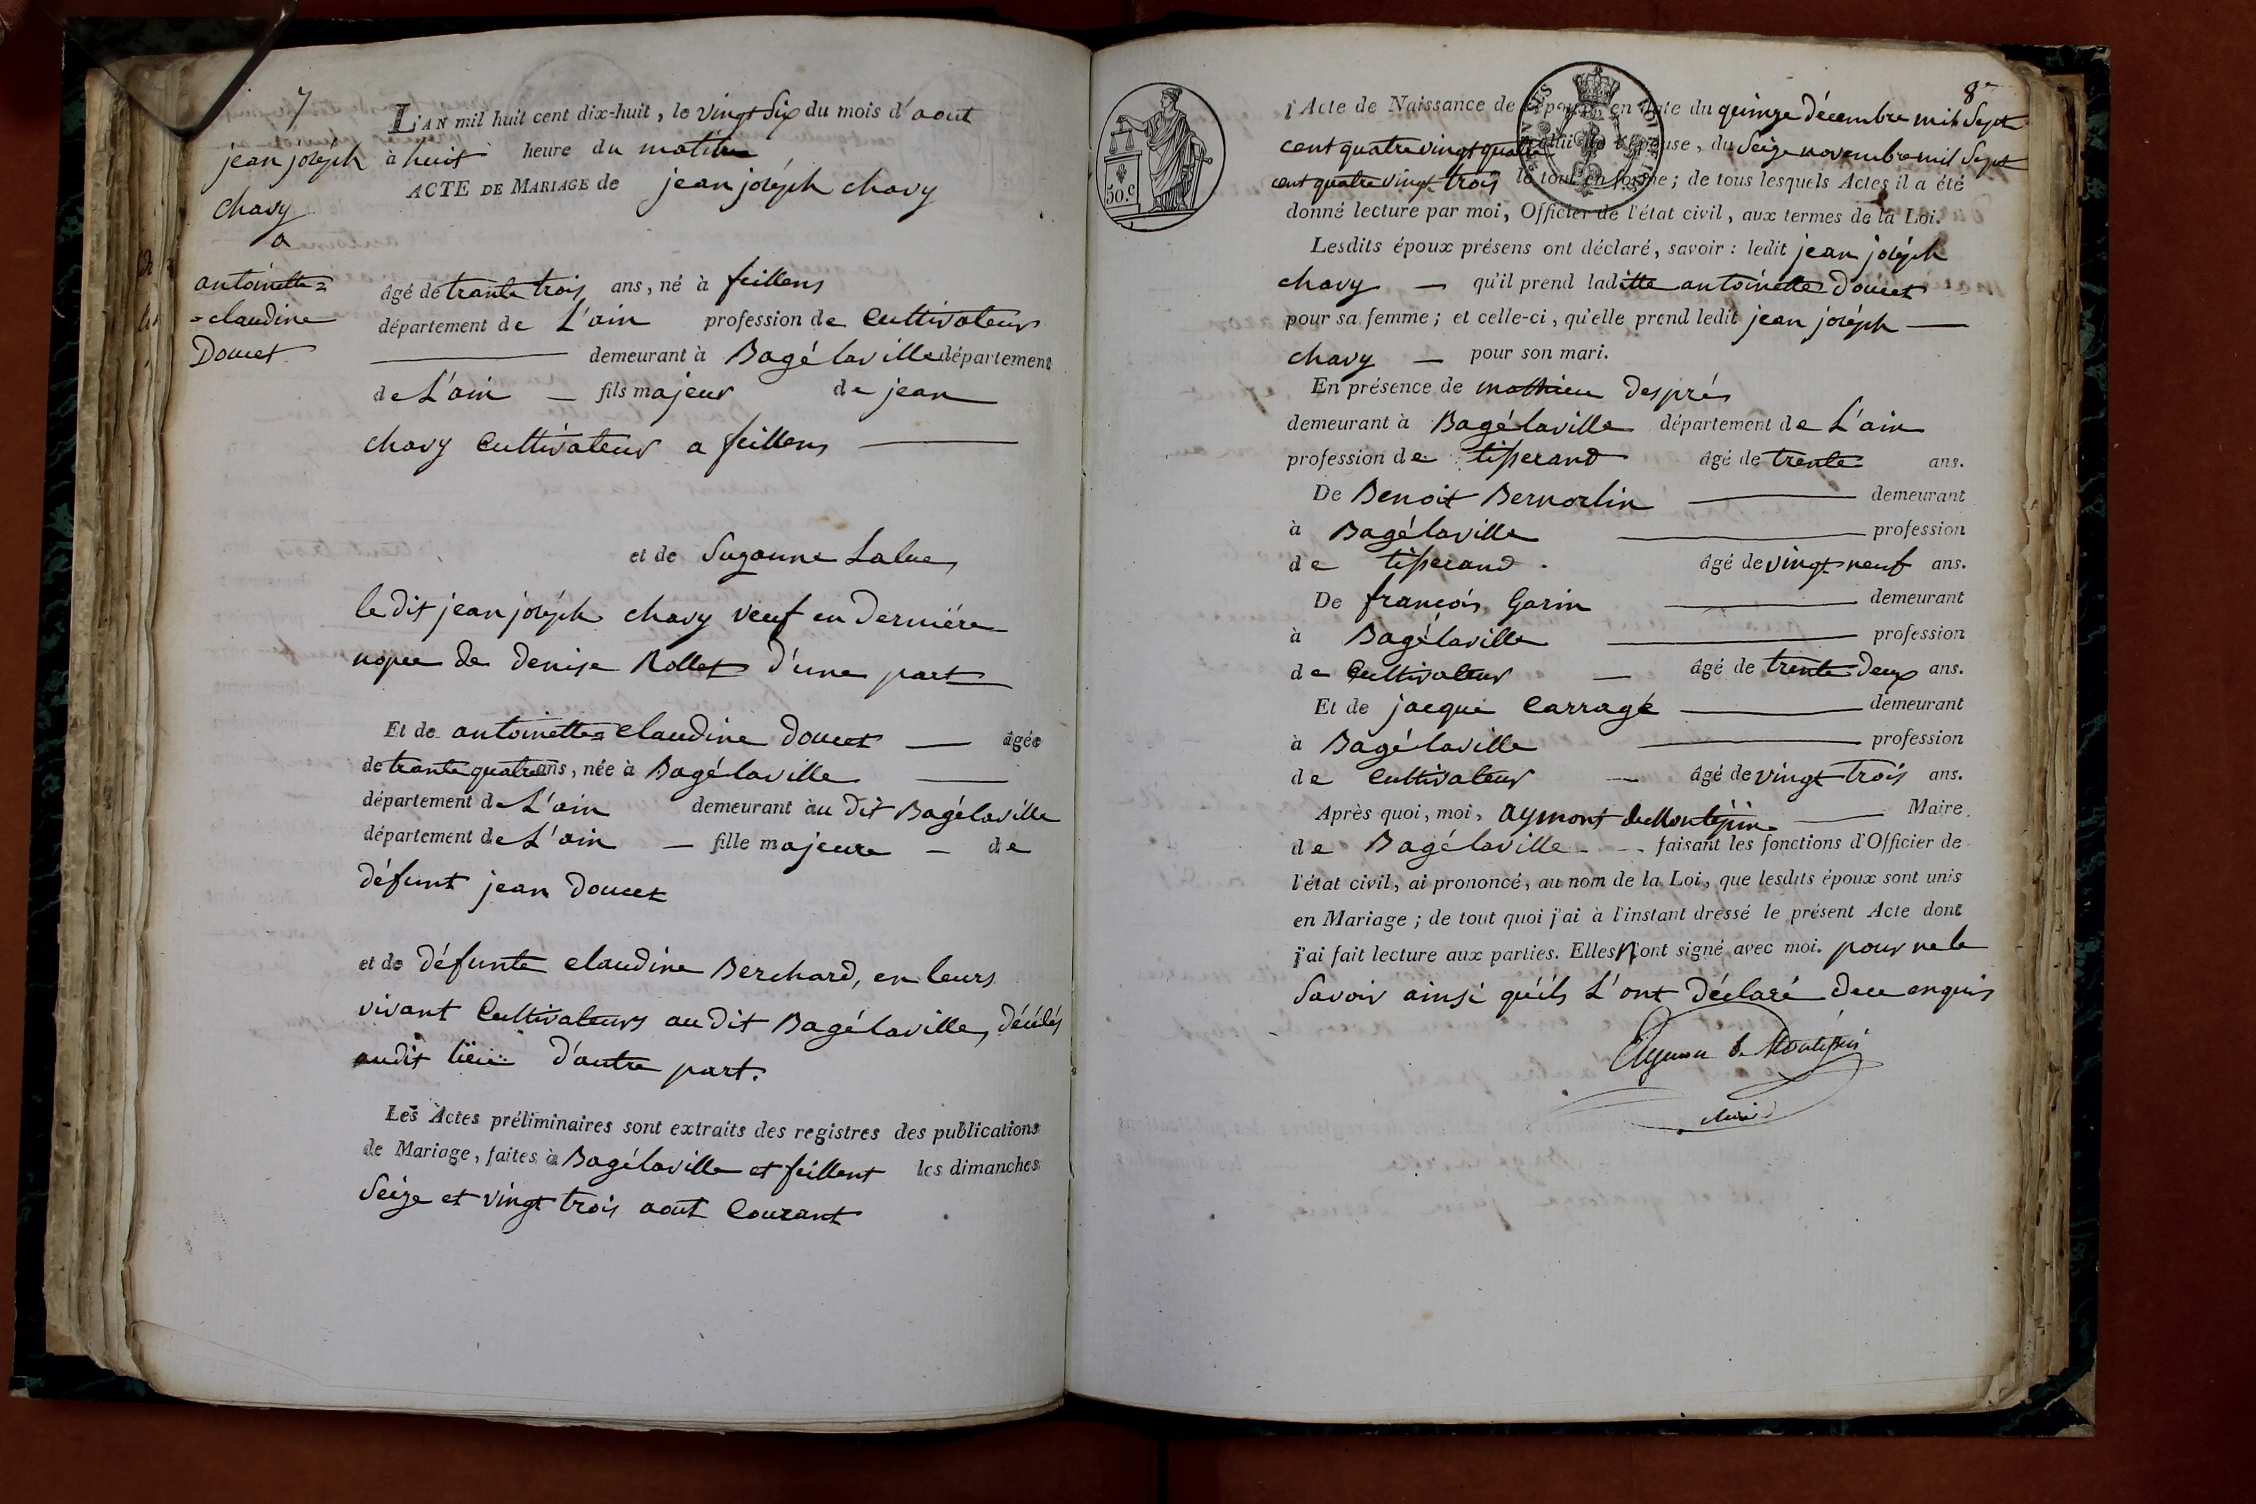 7
jean joséph
chavy
a
antoinette=
=claudine
Doucet
L'AN mil huit cent dix-huit, le vingt Six du mois d'aout
à huit heure du matin
ACTE DE MARIAGE de jean joséph chavy
âgé de trante trois ans, né à feillens
département de L'ain profession de Cultivateur
demeurant à Bagé laville département
de L'ain — fils majeur de jean
chavy Cultivateur a feillens
et de Suzanne Lalue
le dit jean joséph chavy veuf en derniére
nopce de denise Rollet d'une part
Et de antoinette=claudine doucet — âgée
de trante quatre ans, née à Bagé laville
département de L'ain demeurant àu dit Bagélaville
département de L'ain — fille majeure — de
défunt jean doucet
et de défunte claudine Berchard, en leurs
vivant Cultivateurs au dit Bagé laville, décédés
audit lieu d'autre part.
Les Actes préliminaires sont extraits des registres des publications
de Mariage, faites à Bagélaville et feillent les dimanches
Seize et vingt trois aout Courant
8
50.c
l'Acte de Naissance de l'époux, en date du quinze décembre mil Sept
cent quatre vingt quatre celui de l'épouse, du Seize novembre mil Sept
cent quatre vingt trois le tout en forme; de tous lesquels Actes il a été
donné lecture par moi, Officier de l'état civil, aux termes de la Loi.
Lesdits époux présens ont déclaré, savoir : ledit jean joséph
chavy — qu'il prend laditte antoinette Doucet
pour sa femme; et celle-ci, qu'elle prend ledit jean joséph —
chavy — pour son mari.
En présence de mathieu després
demeurant à Bagélaville département de L'ain
profession de tisserand âgé de trente ans.
De Benoit Bernordin demeurant
à Bagélaville profession
de tisserand. âgé de vingt neuf ans.
De françois Garin demeurant
à Bagélaville profession
de Cultivateur — âgé de trente deux ans.
Et de jacque Carragé demeurant
à Bagélaville profession
de Cultivateur — âgé de vingt trois ans.
Après quoi, moi, aymont de Montépin Maire
de Bagélaville - - - faisant les fonctions d'Officier de
l'état civil, ai prononcé, au nom de la Loi, que lesdits époux sont unis
en Mariage; de tout quoi j'ai à l'instant dressé le présent Acte dont
j'ai fait lecture aux parties. Elles n'ont signé avec moi. pour ne le
Savoir ainsi qu'ils L'ont déclaré dece enquis
Aymon de Montépin